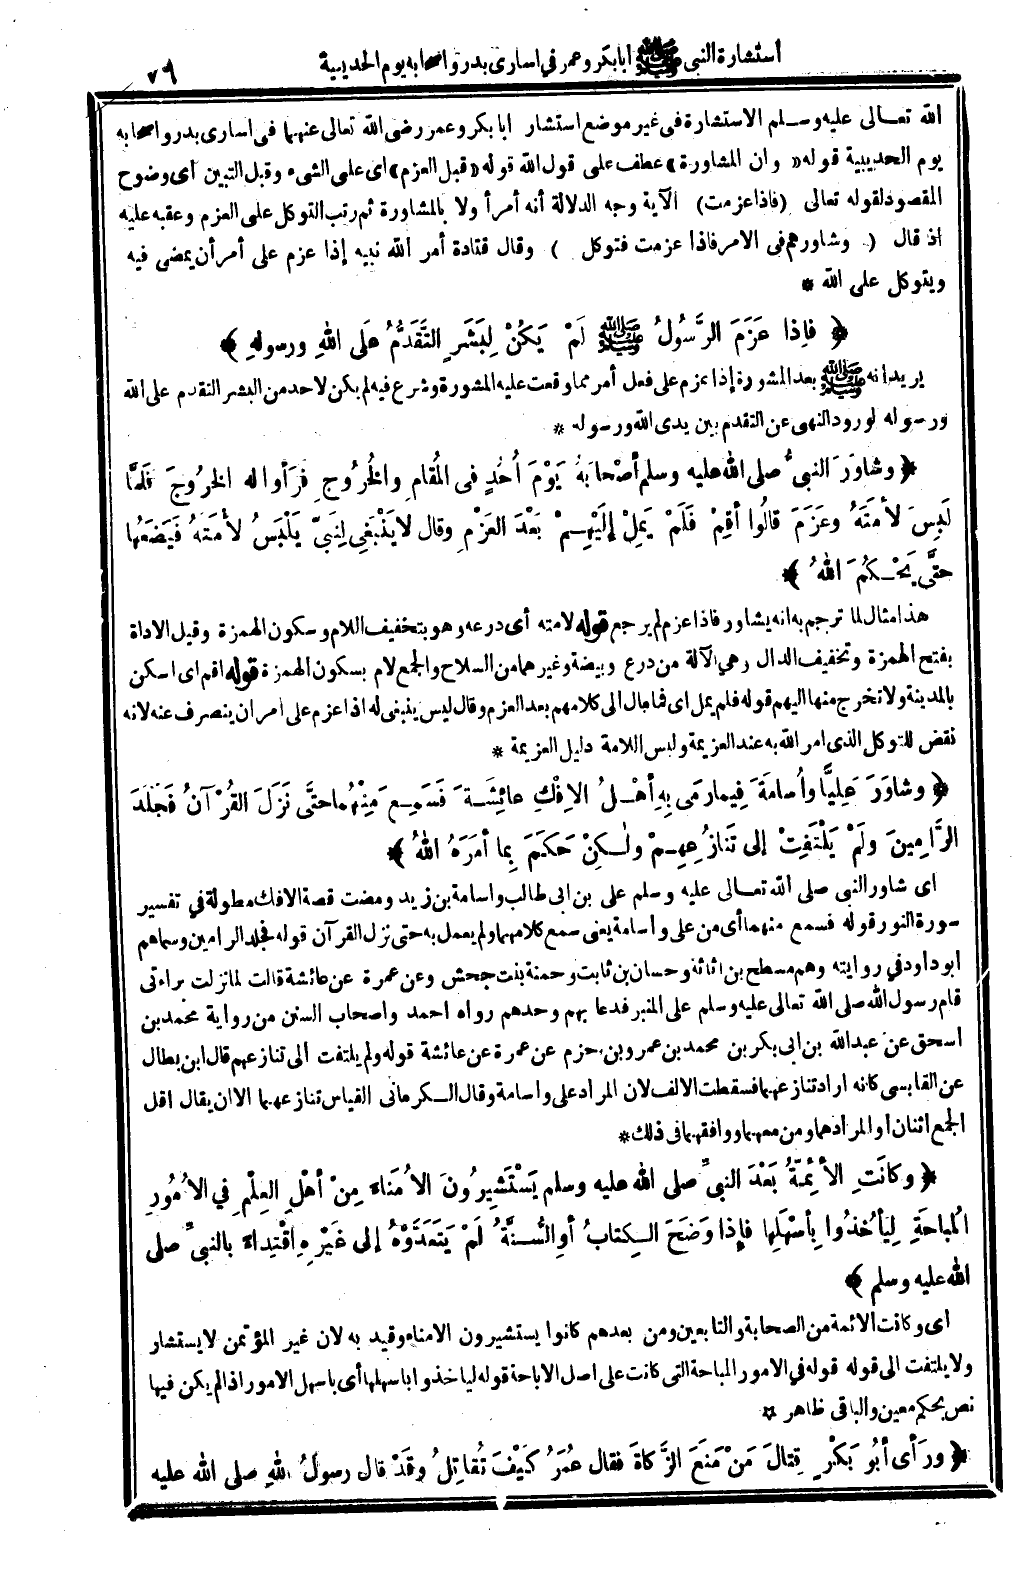 استشارة النبى ﷺ ابابكر وعمر فى اسارى بدر واصحابه يوم الحديبية ٧٩
الله تعـالى عليه وسـلم الاستشارة فى غير موضع استشار ابا بكر وعمر رضى الله تعالى عنهما فى اسارى بدر واصحابه
يوم الحديبية قوله «وان المشاورة» عطف على قول الله قوله «قبل العزم» اى على الشىء وقبل التبين أى وضوح
المقصود لقوله تعالى (فاذا عزمت) الآية وجه الدلالة أنه أمر أولا بالمشاورة ثم رتب التوكل على العزم وعقبه عليه
اذ قال ( وشاورهم فى الامر فاذا عزمت فتوكل ) وقال قتادة أمر الله نبيه إذا عزم على أمر أن يمضى فيه
ويتوكل على الله *
﴿ فإذا عَزَمَ الرَّسُولُ ﷺ لَمْ يَكُنْ لِبَشَرٍ التَّقَدُّمُ عَلَى اللهِ ورسولِهِ ﴾
يريد انه ﷺ بعد المشورة إذا عزم على فعل أمر مما وقعت عليه المشورة وشرع فيه لم يكن لاحد من البشر التقدم على الله
ورسوله لورود النهى عن التقدم بين يدى الله ورسوله *
﴿ وشاوَرَ النبىُّ صلى الله عليه وسلم أصْحابَهُ يَوْمَ أُحُدٍ فى المُقامِ والخُرُوجِ فَرَأَوا له الخرُوجَ فَلَمَّا
لَبِسَ لأْمَتَهُ وعَزَمَ قالُوا أقِمْ فَلَمْ يَمِلْ إِلَيْهِـمْ بَعْدَ العَزْمِ وقال لا يَنْبَغِى لِنَبِىٍّ يَلْبَسُ لأْمَتَهُ فَيَضَعُها
حتَّى يَحْـكُمَ اللهُ ﴾
هذا مثال لما ترجم به انه يشاور فاذا عزم لم يرجع قوله لامته أى درعه وهو بتخفيف اللام وسكون الهمزة وقيل الاداة
بفتح الهمزة وتخفيف الدال وهى الآلة من درع وبيضة وغيرهما من السلاح والجمع لام بسكون الهمزة قوله اقم اى اسكن
بالمدينة ولا تخرج منها اليهم قوله فلم يمل اى فما مال الى كلامهم بعد العزم وقال ليس ينبغى له اذا عزم على امر ان ينصرف عنه لانه
نقض للتوكل الذى امر الله به عند العزيمة ولبس اللامة دليل العزيمة *
﴿ وشاوَرَ عَلِيًّا وأُسامَةَ فِيما رَمَى بِهِ أهْـلُ الإفْكِ عائِشَـةَ فَسَمِـعَ مِنْهُما حتَّى نَزَلَ القُرْآنُ فَجَلَدَ
الرَّامِينَ ولَمْ يَلْتَفِتْ إلى تَنازُعِهِـمْ ولٰـكِنْ حَكَمَ بِما أمَرَهُ اللهُ ﴾
اى شاور النبى صلى الله تعـالى عليه وسلم على بن ابى طالب واسامة بن زيد ومضت قصة الافك مطولة فى تفسير
سورة النور قوله فسمع منهما أى من على وأسامة يعنى سمع كلامهما ولم يعمل به حتى نزل القرآن قوله فجلد الرامين وسماهم
ابو داود فى روايته وهم مسطح بن اثاثة وحسان بن ثابت وحمنة بنت جحش وعن عمرة عن عائشة قالت لما نزلت براءتى
قام رسول الله صلى الله تعالى عليه وسلم على المنبر فدعا بهم وحدهم رواه احمد واصحاب السنن من رواية محمد بن
اسحق عن عبدالله بن ابى بكر بن محمد بن عمرو بن حزم عن عمرة عن عائشة قوله ولم يلتفت الى تنازعهم قال ابن بطال
عن القابسى كانه اراد تنازعهما فسقطت الالف لان المراد على واسامة وقال الـكرمانى القياس تنازعهما الا ان يقال اقل
الجمع اثنان او المراد هما ومن معهما ووافقهما فى ذلك *
﴿ وكانَتِ الأئِمَّةُ بَعْدَ النبىِّ صلى الله عليه وسلم يَسْتَشِيرُونَ الأُمَناءَ مِنْ أهْلِ العِلْمِ فِي الأُمُورِ
المُباحَةِ لِيَأْخُذُوا بِأسْهَلِها فإِذا وَضَحَ الـكِتابُ أوِ السُّـنَّةُ لَمْ يَتَعَدَّوْهُ إلى غَيْرِهِ اقْتِداءً بالنبىِّ صلى
الله عليه وسلم ﴾
اى وكانت الائمة من الصحابة والتابعين ومن بعدهم كانوا يستشيرون الامناء وقيد به لان غير المؤتمن لا يستشار
ولا يلتفت الى قوله قوله فى الامور المباحة التى كانت على اصل الاباحة قوله لياخذوا باسهلها أى باسهل الامور اذا لم يكن فيها
نص بحكم معين والباقى ظاهر *
﴿ ورَأى أبُو بَكْرٍ قِتالَ مَنْ مَنَعَ الزَّكاةَ فقال عُمَرُ كَيْفَ تُقاتِلُ وقَدْ قال رسولُ اللهِ صلى الله عليه